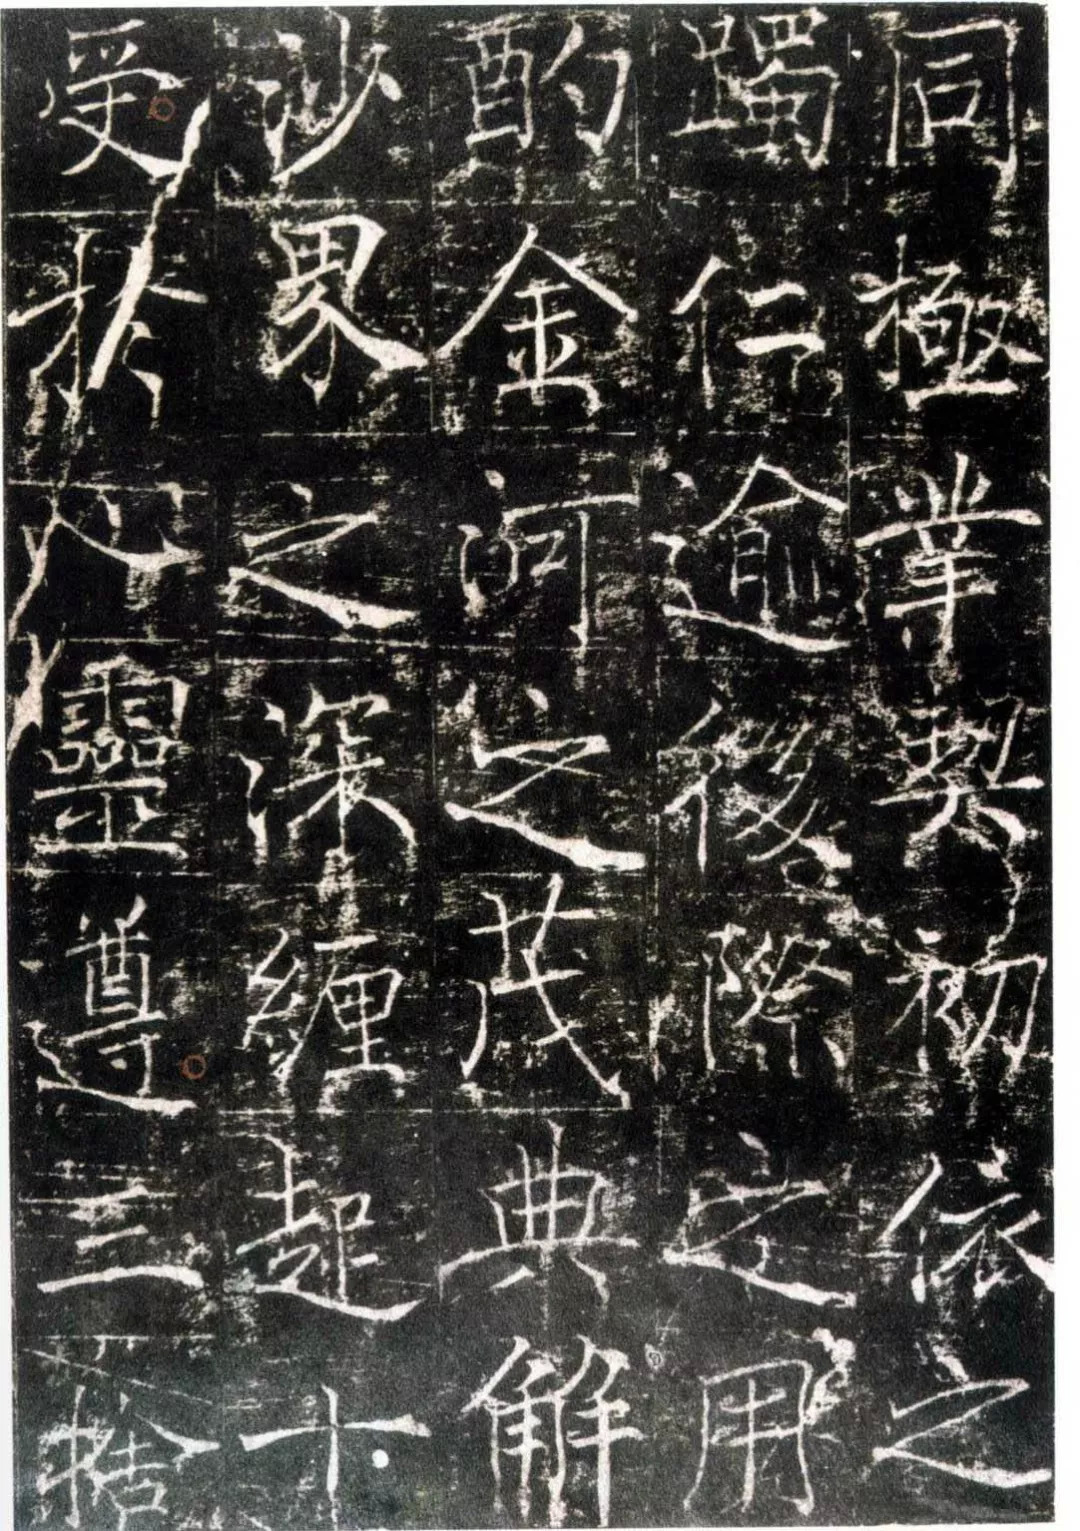 同極業契初依之
躅仁逾後際之用
酌金河之茂典解
沙界之深纏超十
受於八靈遵三捨